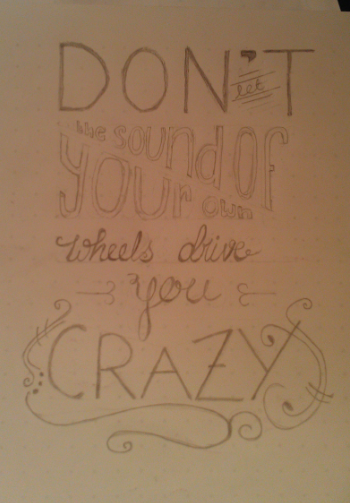 DON'T
let
the sound of
your own
wheels drive
you
CRAZY